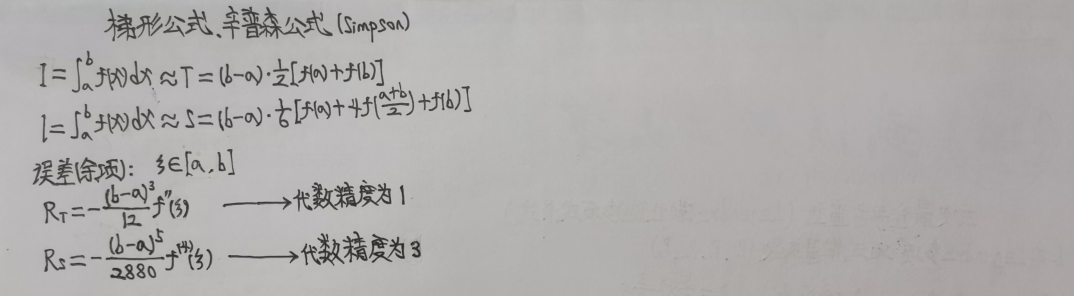 梯形公式、辛普森公式(Simpson)
I=∫_a^b f(x)dx≈T=(b-a)·1/2[f(a)+f(b)]
I=∫_a^b f(x)dx≈S=(b-a)·1/6[f(a)+4f((a+b)/2)+f(b)]
误差(余项): ξ∈[a,b]
R_T=-(b-a)³/12 f''(ξ) ⟶代数精度为1
R_S=-(b-a)⁵/2880 f⁽⁴⁾(ξ) ⟶代数精度为3